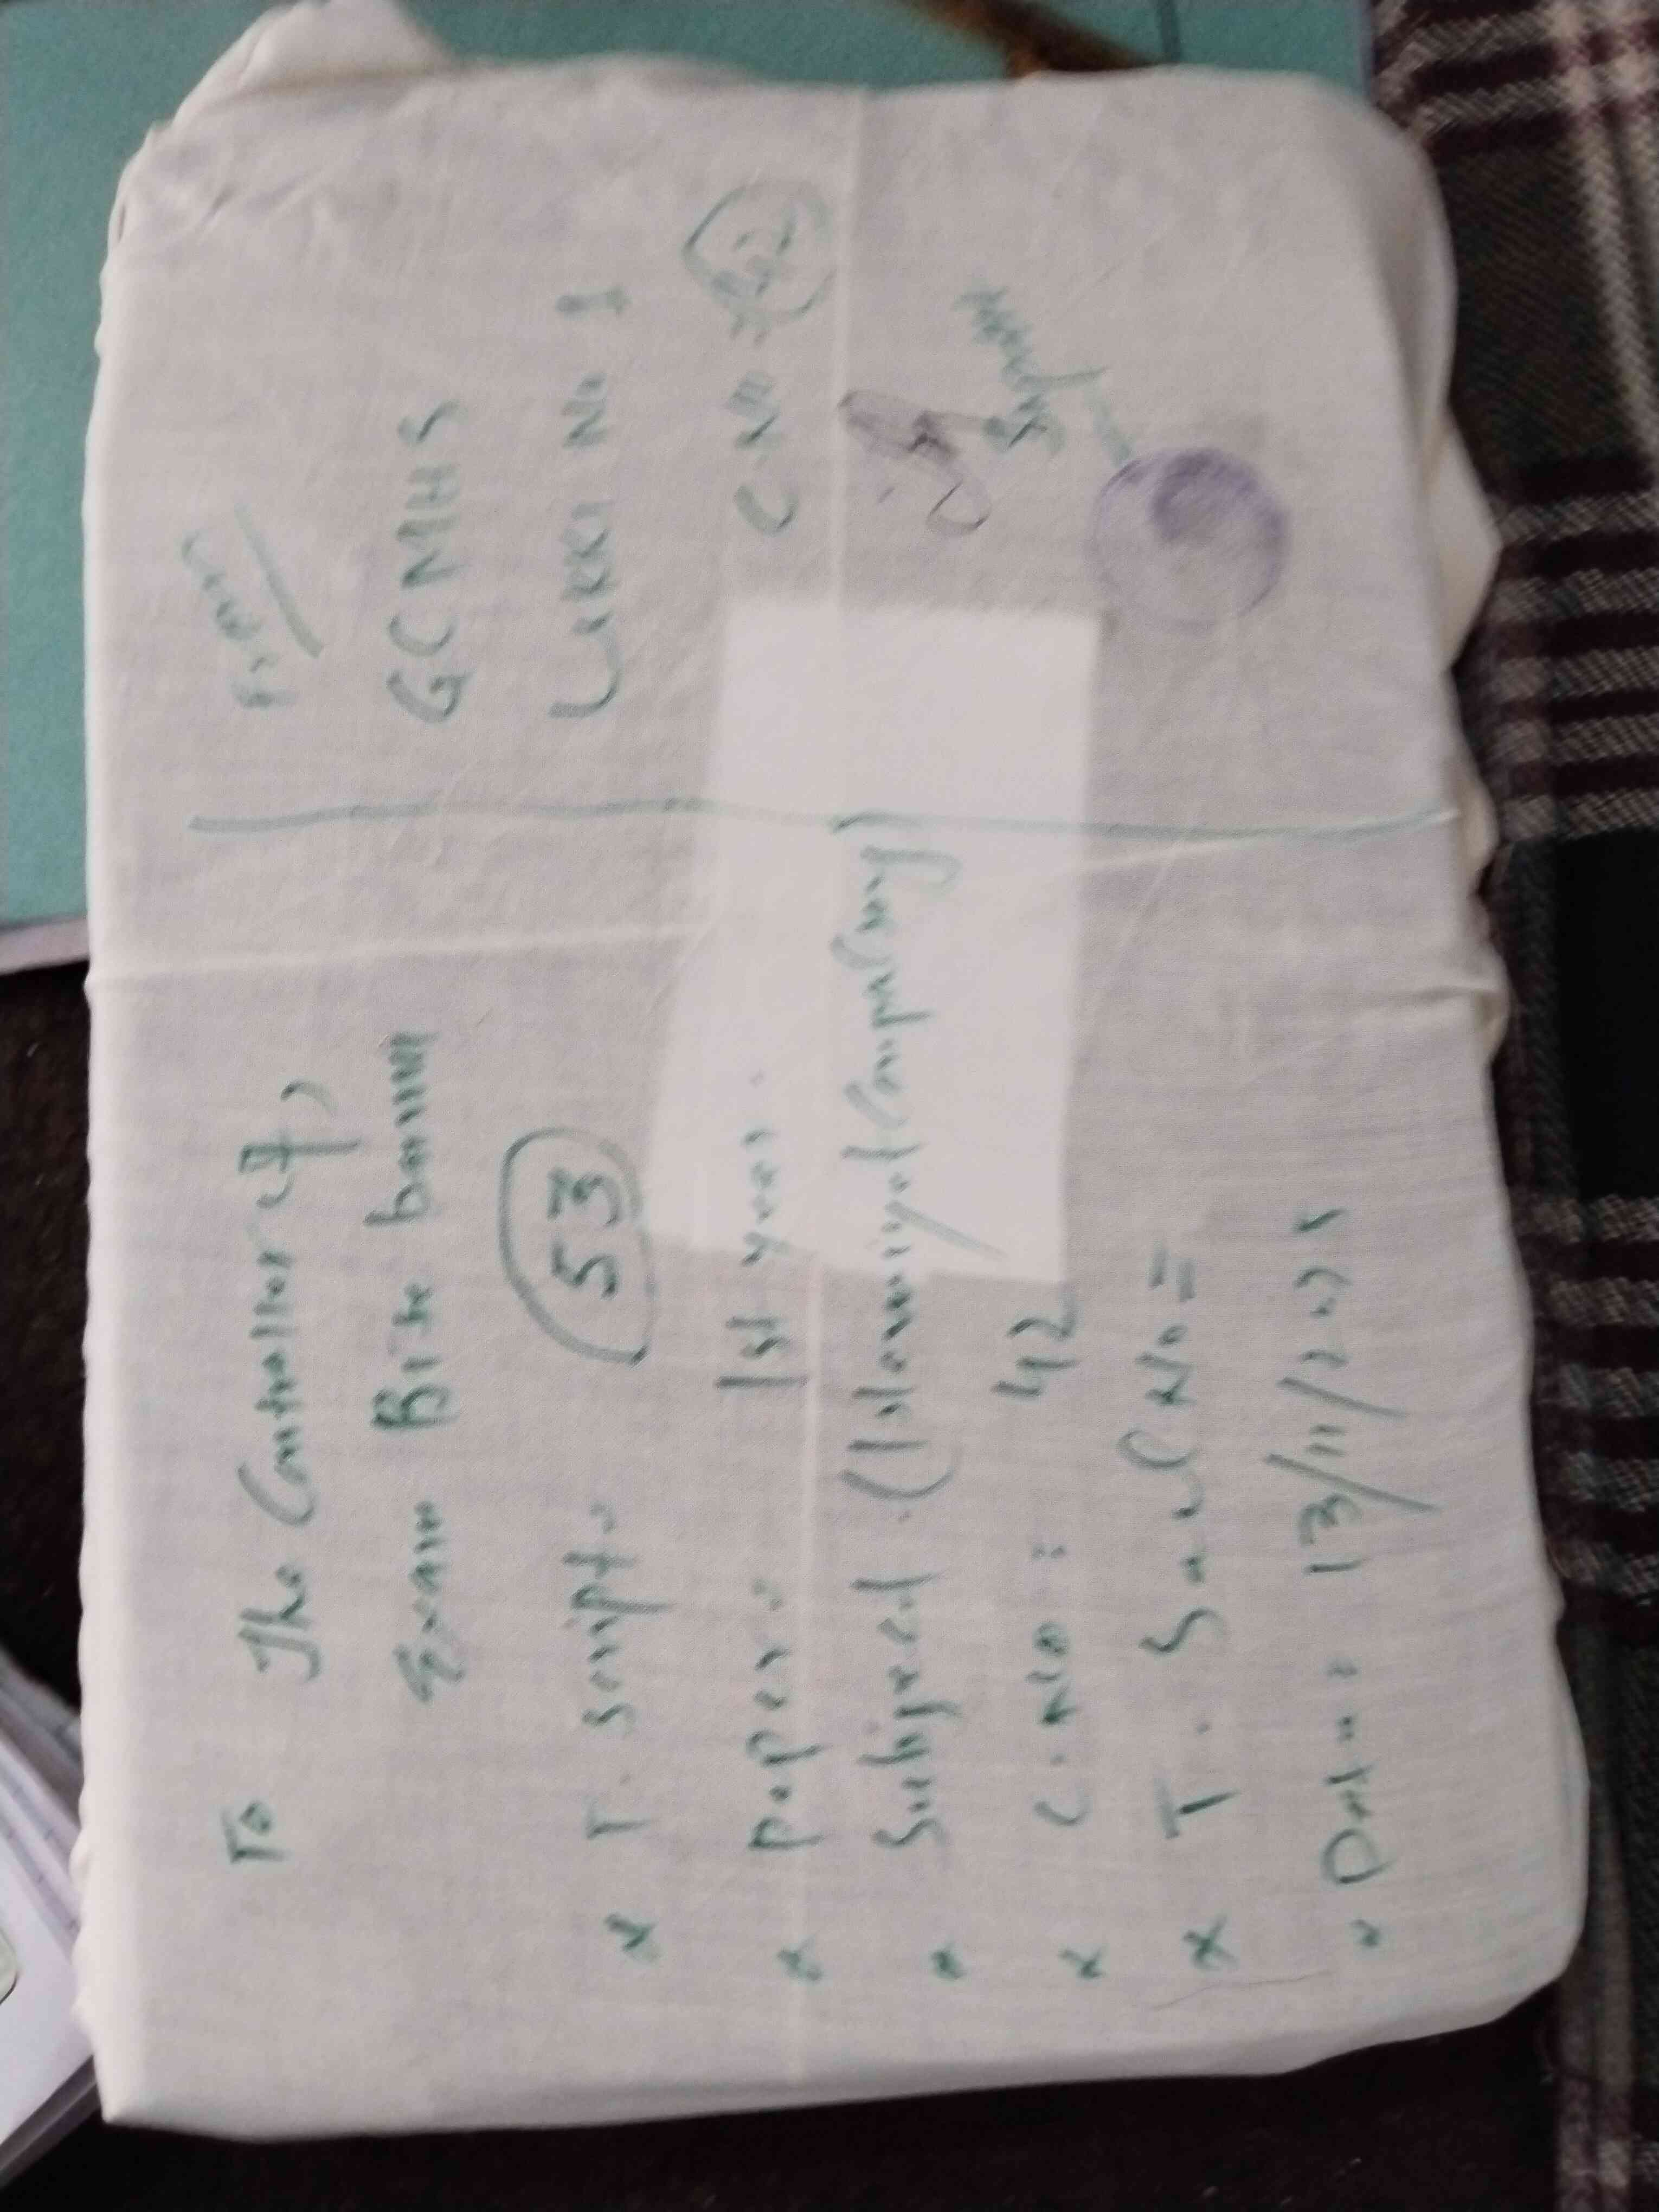 To
The Controller of,
Exam Bise bannu
* T. script = 53
* Paper = 1st year.
* Subject (Islamiyat Compulsory)
* C.No = 42
* T. Seal No =
* Date = 13/11/2025
From
GCMHS
LAKKI No 1
C.No = 42
Supdt